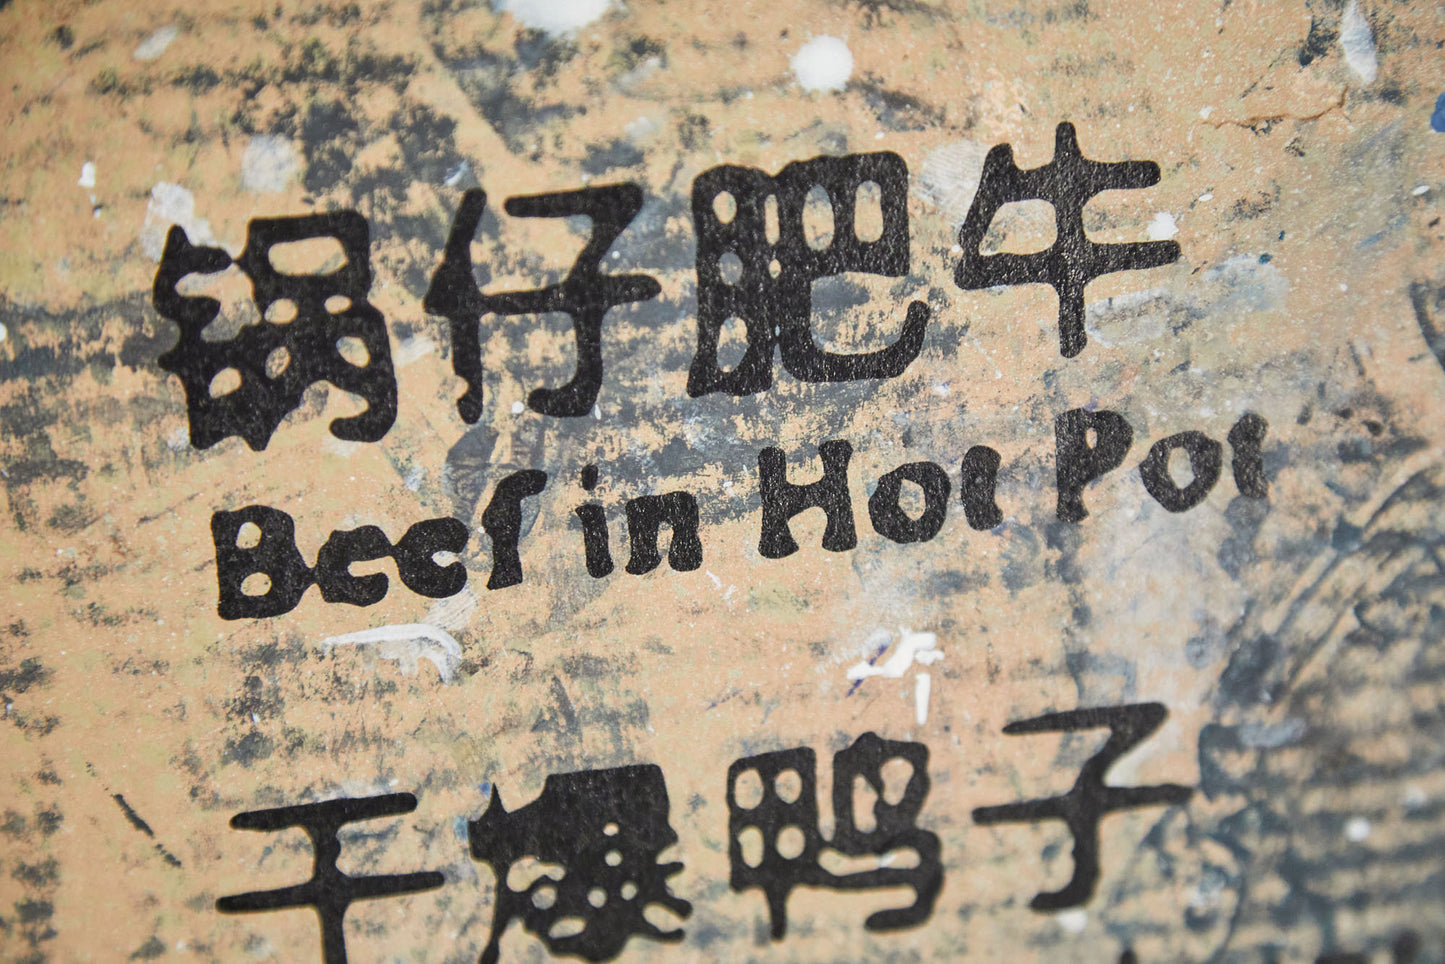 锅仔肥牛
Beef in Hot Pot
干爆鸭子